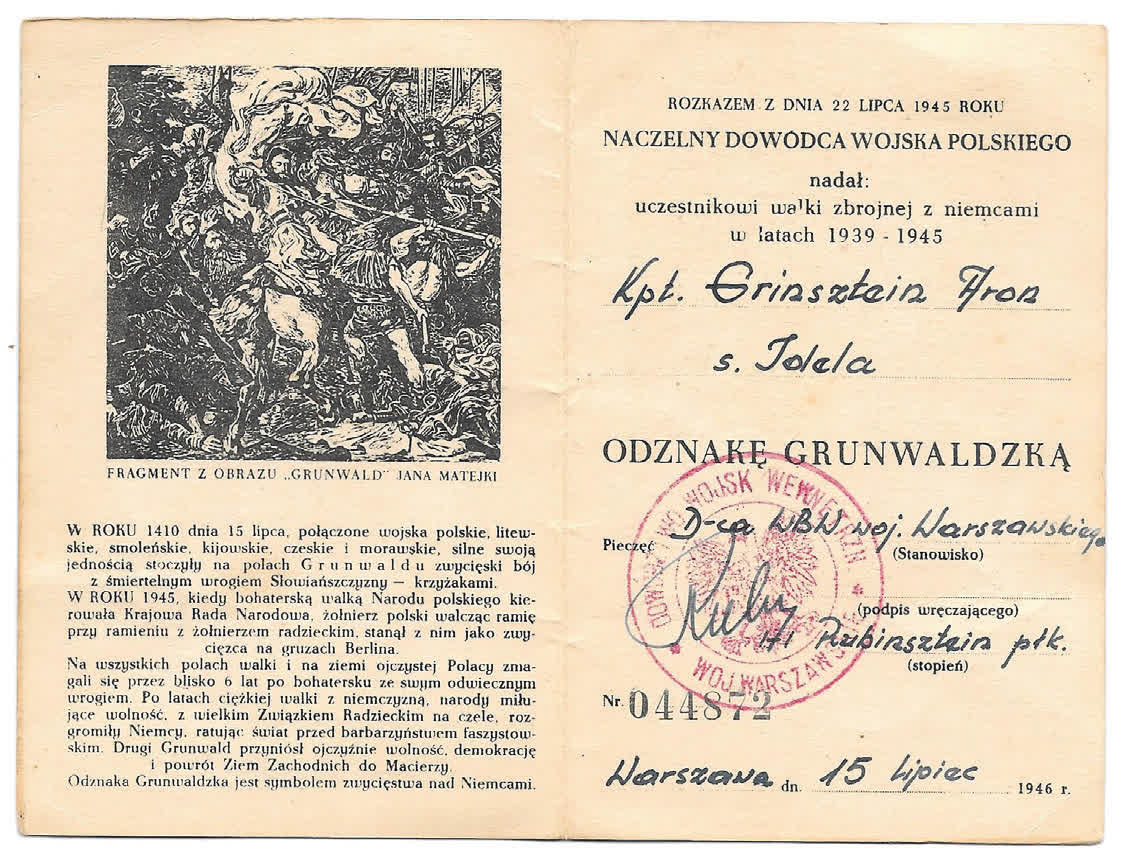 FRAGMENT Z OBRAZU „GRUNWALD" JANA MATEJKI
W ROKU 1410 dnia 15 lipca, połączone wojska polskie, litew-
skie, smoleńskie, kijowskie, czeskie i morawskie, silne swoją
jednością stoczyły na polach Grunwaldu zwycięski bój
z śmiertelnym wrogiem Słowiańszczyzny — krzyżakami.
W ROKU 1945, kiedy bohaterską walką Narodu polskiego kie-
rowała Krajowa Rada Narodowa, żołnierz polski walcząc ramię
przy ramieniu z żołnierzem radzieckim, stanął z nim jako zwy-
cięzca na gruzach Berlina.
Na wszystkich polach walki i na ziemi ojczystej Polacy zma-
gali się przez blisko 6 lat po bohatersku ze swym odwiecznym
wrogiem. Po latach ciężkiej walki z niemczyzną, narody miłu-
jące wolność, z wielkim Związkiem Radzieckim na czele, roz-
gromiły Niemcy, ratując świat przed barbarzyństwem faszystow-
skim. Drugi Grunwald przyniósł ojczyźnie wolność, demokrację
i powrót Ziem Zachodnich do Macierzy.
Odznaka Grunwaldzka jest symbolem zwycięstwa nad Niemcami.
ROZKAZEM Z DNIA 22 LIPCA 1945 ROKU
NACZELNY DOWÓDCA WOJSKA POLSKIEGO
nadał:
uczestnikowi walki zbrojnej z niemcami
w latach 1939 - 1945
Kpt. Grinsztein Aron
s. Idela
ODZNAKĘ GRUNWALDZKĄ
D-ca WBW woj. Warszawskiego
Pieczęć
(Stanowisko)
(podpis wręczającego)
Rubinsztein płk.
(stopień)
WOJSK WEWNĘTRZN
WOJ. WARSZAWSK
Nr. 044872
Warszawa dn. 15 Lipiec 1946 r.